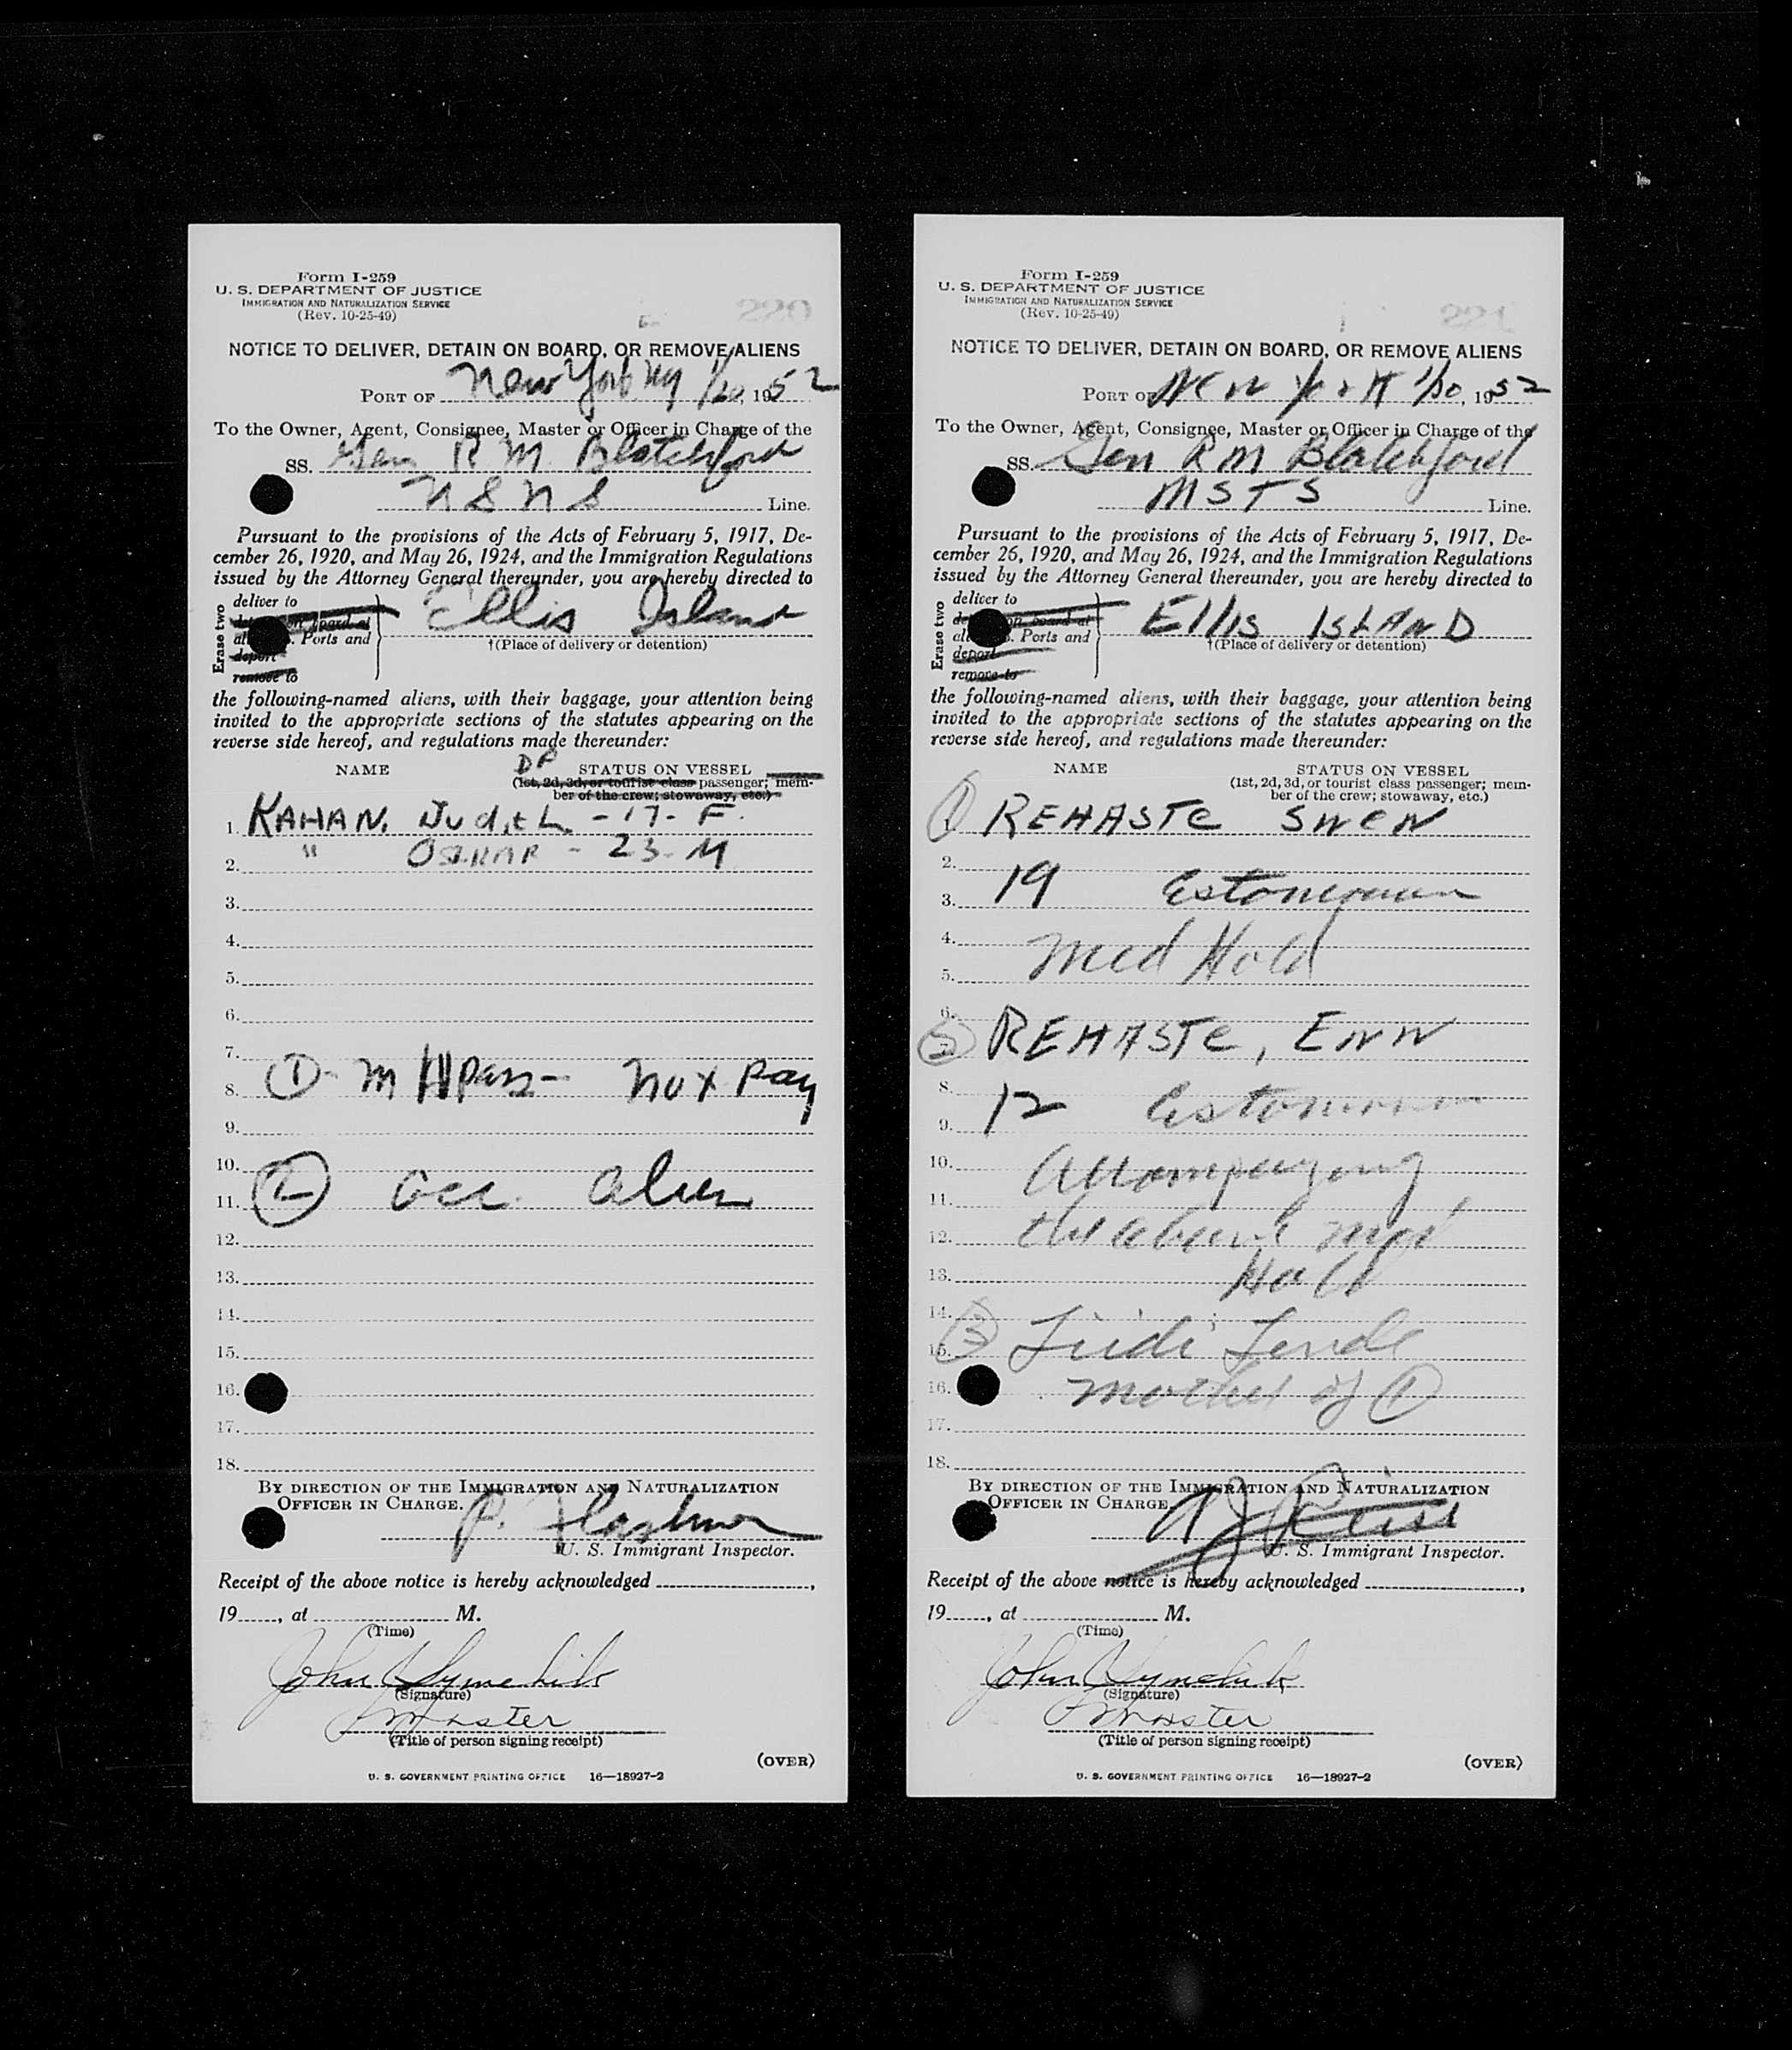 Form I-259
U. S. DEPARTMENT OF JUSTICE
IMMIGRATION AND NATURALIZATION SERVICE
(Rev. 10-25-49)
220
NOTICE TO DELIVER, DETAIN ON BOARD, OR REMOVE ALIENS
PORT OF New York NY 1/20, 1952
To the Owner, Agent, Consignee, Master or Officer in Charge of the
SS. Gen R M Blatchford
NSNS Line.
Pursuant to the provisions of the Acts of February 5, 1917, De-
cember 26, 1920, and May 26, 1924, and the Immigration Regulations
issued by the Attorney General thereunder, you are hereby directed to
Erase two
deliver to
on board at
Ports and
deport
remove to
Ellis Island
†(Place of delivery or detention)
the following-named aliens, with their baggage, your attention being
invited to the appropriate sections of the statutes appearing on the
reverse side hereof, and regulations made thereunder:
DP
NAME STATUS ON VESSEL
(1st, 2d, 3d, or tourist class passenger; mem-
ber of the crew; stowaway, etc.)
1. KAHAN, Judith - 17 - F.
2. " OSKAR - 23 - M
3.
4.
5.
6.
7.
8. (1) - M not pay
9.
10.
11. (2) acc. alien
12.
13.
14.
15.
16.
17.
18.
BY DIRECTION OF THE IMMIGRATION AND NATURALIZATION
OFFICER IN CHARGE.
P.
U. S. Immigrant Inspector.
Receipt of the above notice is hereby acknowledged ,
19 , at M.
(Time)
John
(Signature)
Master
(Title of person signing receipt)
(OVER)
U. S. GOVERNMENT PRINTING OFFICE 16—18927-2
Form I-259
U. S. DEPARTMENT OF JUSTICE
IMMIGRATION AND NATURALIZATION SERVICE
(Rev. 10-25-49)
221
NOTICE TO DELIVER, DETAIN ON BOARD, OR REMOVE ALIENS
PORT OF NEW YORK 1/20, 1952
To the Owner, Agent, Consignee, Master or Officer in Charge of the
SS. Gen R M Blatchford
MSTS Line.
Pursuant to the provisions of the Acts of February 5, 1917, De-
cember 26, 1920, and May 26, 1924, and the Immigration Regulations
issued by the Attorney General thereunder, you are hereby directed to
Erase two
deliver to
on board at
Ports and
deport
remove to
Ellis ISLAND
†(Place of delivery or detention)
the following-named aliens, with their baggage, your attention being
invited to the appropriate sections of the statutes appearing on the
reverse side hereof, and regulations made thereunder:
NAME STATUS ON VESSEL
(1st, 2d, 3d, or tourist class passenger; mem-
ber of the crew; stowaway, etc.)
(1) REHASTE SWEN
2.
3. 19 Estonian
4.
5. Med Hold
6.
(2) REHASTE, ENN
8.
9. 12 Estonian
10. Accompanying
11.
12. the above med
13. Hold
14.
15. (3)
16. mother of (1)
17.
18.
BY DIRECTION OF THE IMMIGRATION AND NATURALIZATION
OFFICER IN CHARGE.
U. S. Immigrant Inspector.
Receipt of the above notice is hereby acknowledged ,
19 , at M.
(Time)
John
(Signature)
Master
(Title of person signing receipt)
(OVER)
U. S. GOVERNMENT PRINTING OFFICE 16—18927-2